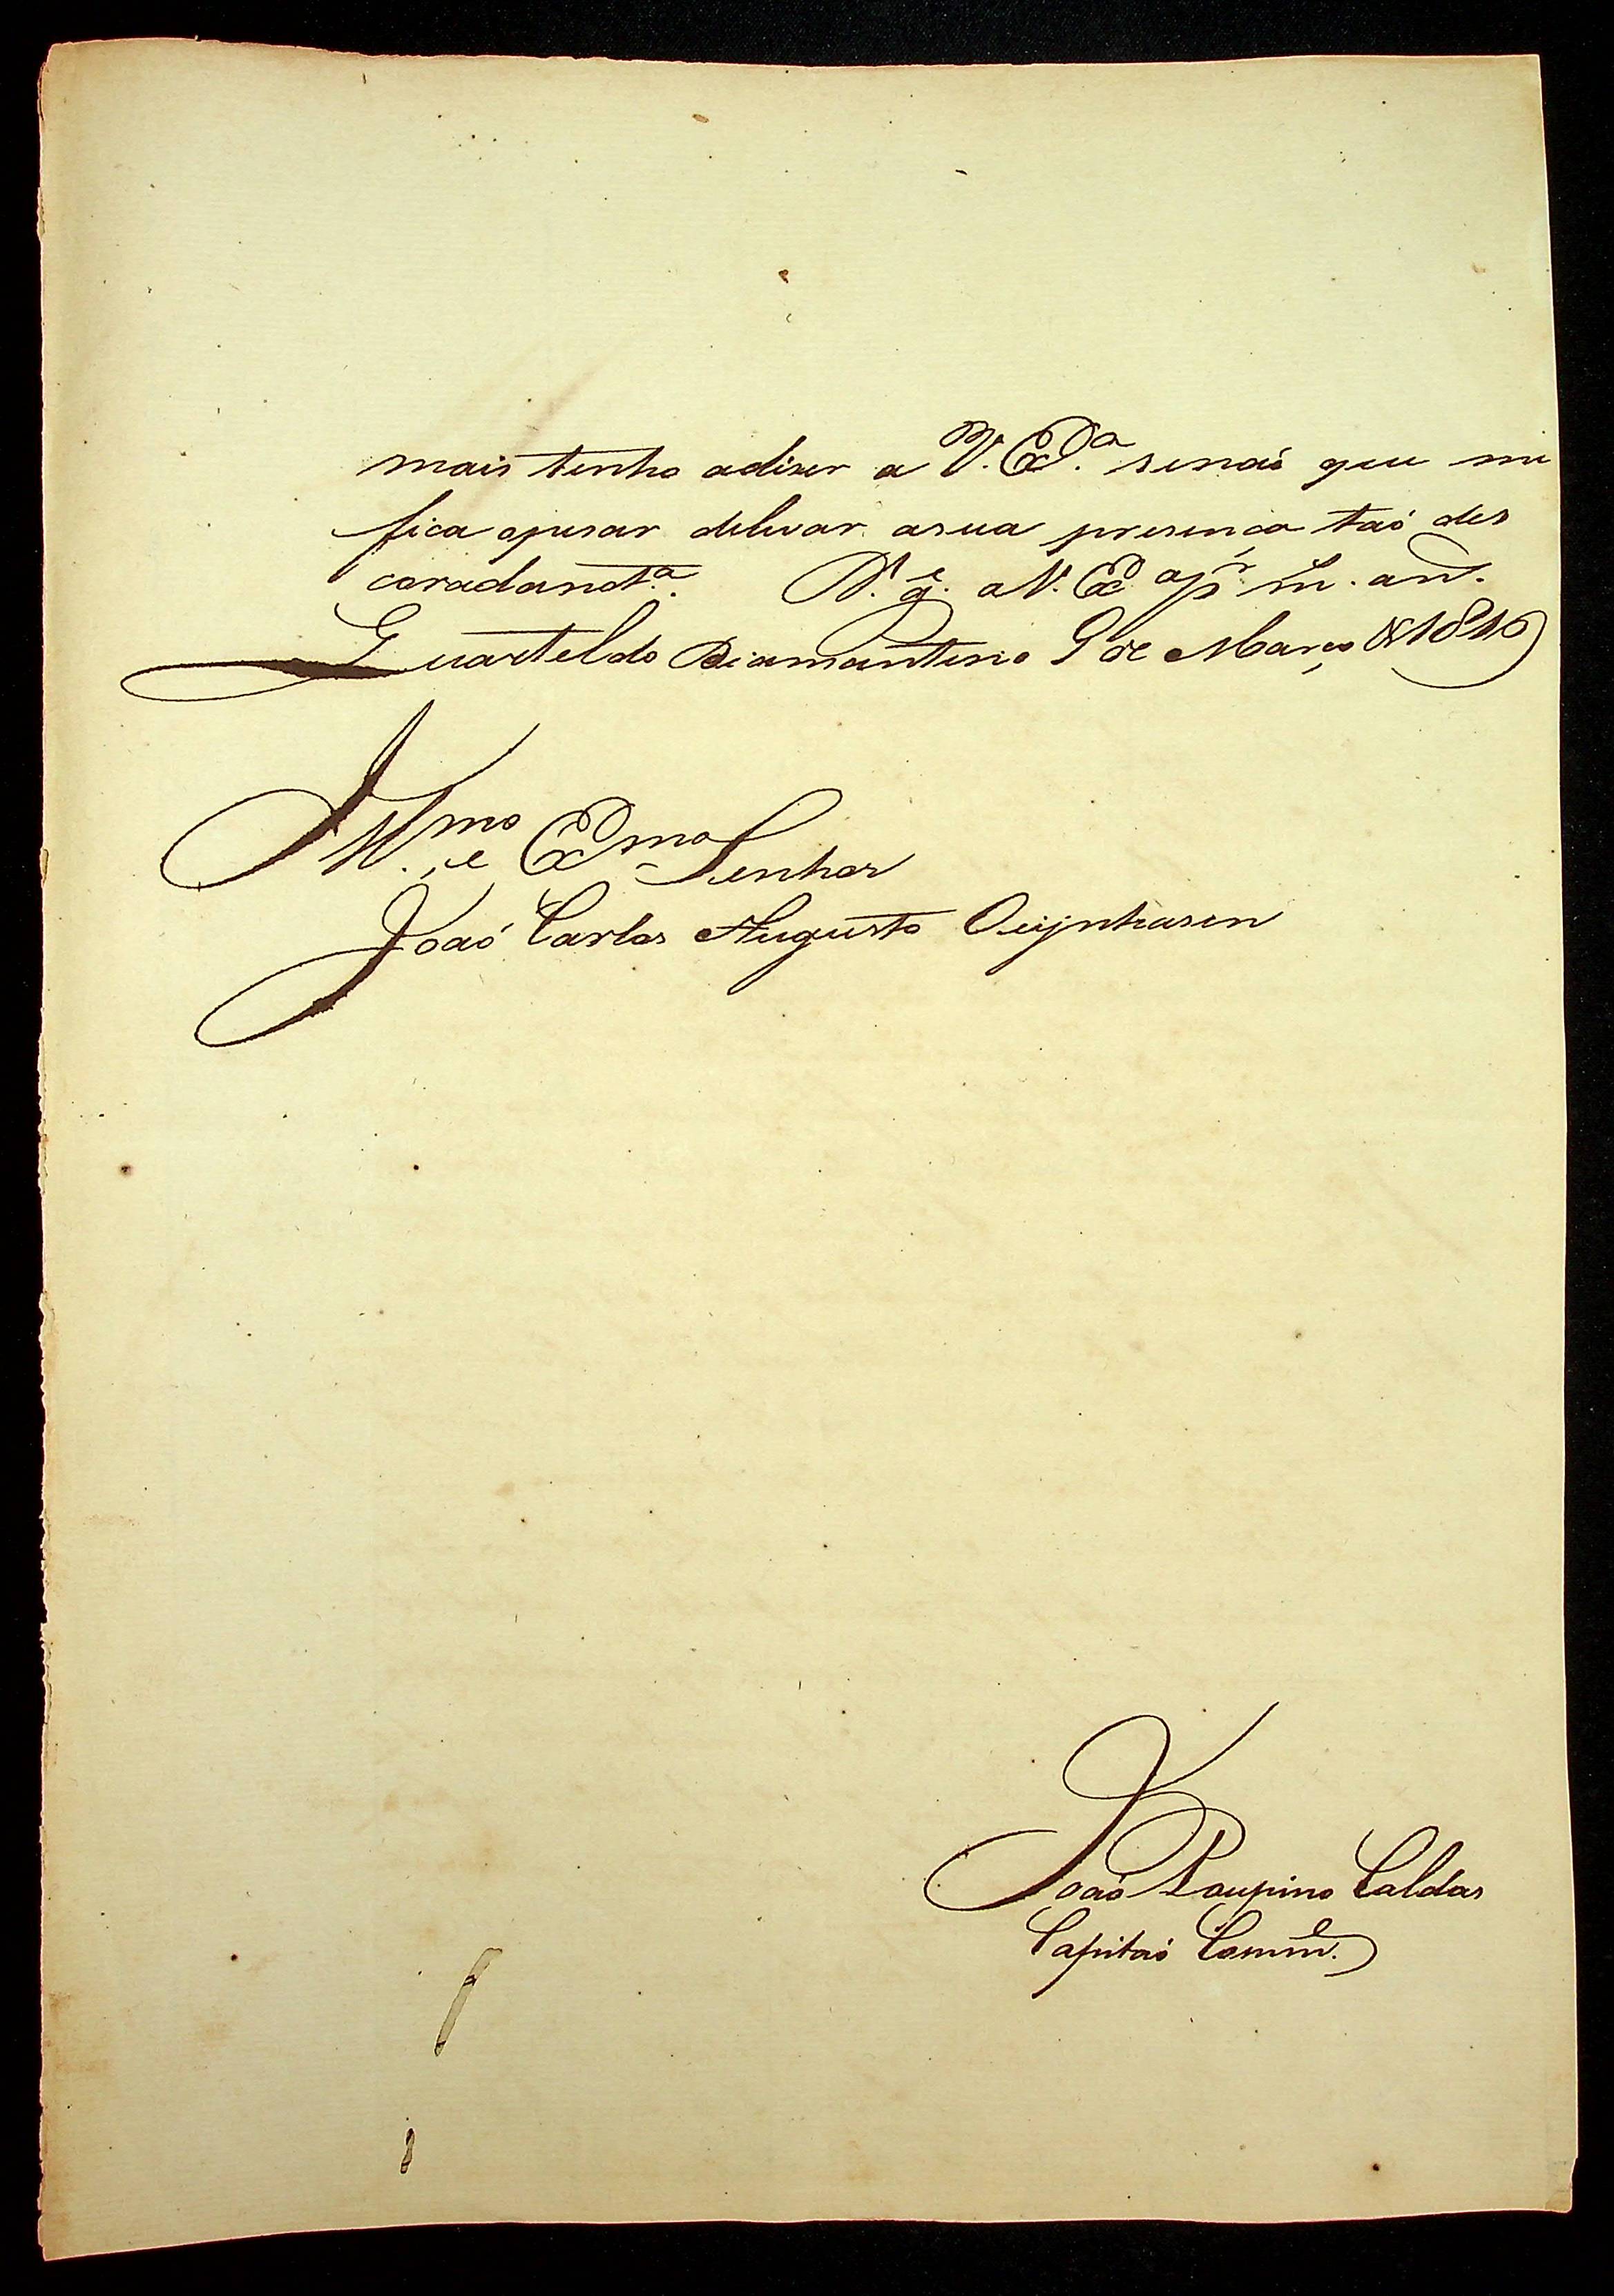 mais tenho adizer a V. Ex.ª senaõ que mi
fica opesar delevar asua presença taõ des
coradanot.ª. D.ˢ g.ᵉ a V. Ex.ª p.ʳ m. an.ˢ
Quarteldo Diamantino 9 de Março de 1816
Ill.ᵐᵒ, e Ex.ᵐᵒ Senhor
Joaõ Carlos Augusto Oeijnhasen
Joaõ Poupino Caldas
Capitaõ Comm.ᵉ